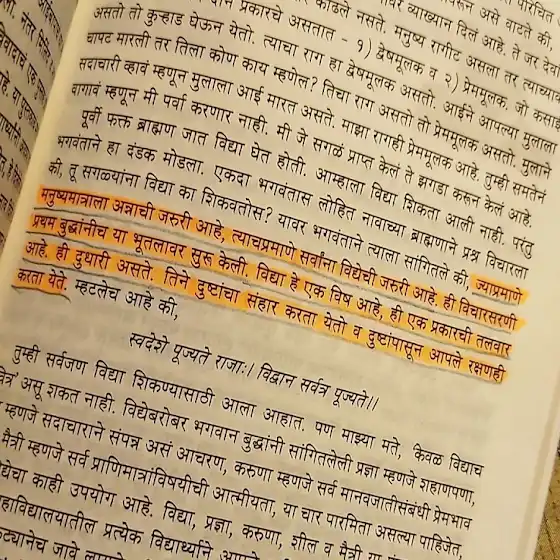 प्रकारचे असतात काढले नसते. मनुष्य व्याख्यान दिलं आहे.
असतो तो कुऱ्हाड घेऊन येतो. त्याचा राग हा द्वेषमूलक व २) प्रेममूलक. जो
चापट मारली तर तिला कोण काय म्हणेल? तिचा राग असतो तो प्रेममूलक असतो. आईने आपल्या मुलाला
सदाचारी व्हावं म्हणून मुलाला आई मारत असते. माझा रागही प्रेममूलक आहे. तुम्ही समतेनं
वागावं म्हणून मी पर्वा करणार नाही. मी जे सगळं प्राप्त केलं ते झगडा करून केलं आहे.
पूर्वी फक्त ब्राह्मण जात विद्या घेत होती. आम्हाला विद्या शिकता आली नाही. परंतु
भगवंताने हा दंडक मोडला. एकदा भगवंतास लोहित नावाच्या ब्राह्मणाने प्रश्न विचारला
की, तू सगळ्यांना विद्या का शिकवतोस? यावर भगवंताने त्याला सांगितले की, ज्याप्रमाणे
मनुष्यमात्राला अन्नाची जरुरी आहे, त्याचप्रमाणे सर्वांना विद्येची जरुरी आहे. ही विचारसरणी
प्रथम बुद्धांनीच या भूतलावर सुरू केली. विद्या हे एक विष आहे, ही एक प्रकारची तलवार
आहे. ही दुधारी असते. तिने दुष्टाचा संहार करता येतो व दुष्टांपासून आपले रक्षणही
करता येते. म्हटलेच आहे की,
स्वदेशे पूज्यते राजाः। विद्वान सर्वत्र पूज्यते।।
तुम्ही सर्वजण विद्या शिकण्यासाठी आला आहात. पण माझ्या मते, केवळ विद्याच
असू शकत नाही. विद्येबरोबर भगवान बुद्धांनी सांगितलेली प्रज्ञा म्हणजे शहाणपणा,
म्हणजे सदाचाराने संपन्न असं आचरण, करुणा म्हणजे सर्व मानवजातीसंबंधी प्रेमभाव
मैत्री म्हणजे सर्व प्राणिमात्रांविषयीची आत्मीयता, या चार पारमिता असल्या पाहिजेत
काही उपयोग आहे. विद्या, प्रज्ञा, करुणा, शील व मैत्री
प्रत्येक विद्यार्थ्याने
जावे